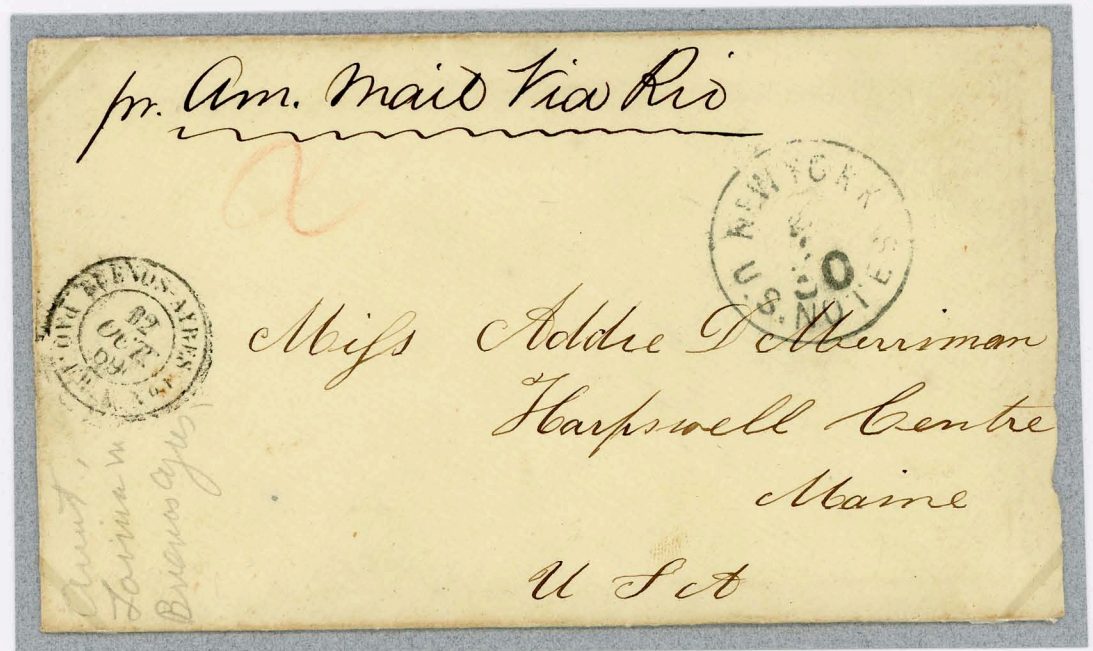 pr. Am. Mail Via Rio
2
NEW YORK
50
U.S. NOTES
BUENOS-AYRES
12
OCT
69
Miss Addie D Merriman
Harpswell Centre
Maine
U S A
Aunt
Lovina in
Buenos Ayres